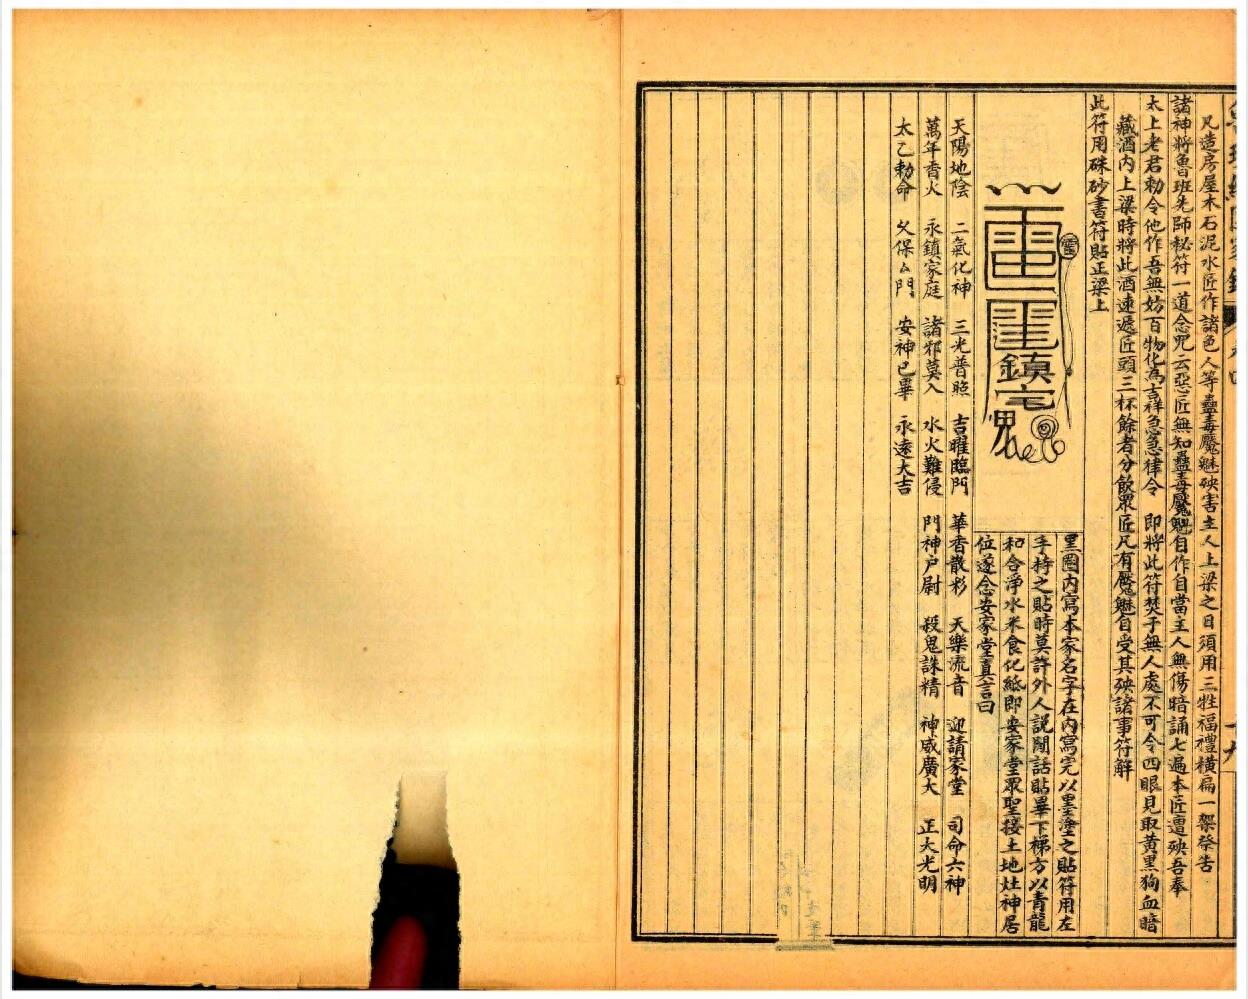 凡造房屋木石泥水匠作諸色人等蠱毒魘魅殃害主人上梁之日須用三牲福禮橫扁一架祭告
諸神將魯班先師秘符一道念咒云惡匠無知蠱毒魘魅自作自當主人無傷暗誦七遍本匠遭殃吾奉
太上老君勅令他作吾無妨百物化爲吉祥急急律令 即將此符焚于無人處不可令四眼見取黃黑狗血暗
藏酒內上梁時將此酒連遞匠頭三杯餘者分飲眾匠凡有魘魅自受其殃諸事符解
此符用硃砂書符貼正梁上
鎮宅
黑圈內寫本家名字在內寫完以墨塗之貼符用左
手持之貼時莫許外人說閒話貼畢下梯方以青龍
和合淨水米食化紙即安家堂眾聖接土地灶神居
位遂念安家堂真言曰
天陽地陰 二氣化神 三光普照 吉曜臨門 華香散彩 天樂流音 迎請家堂 司命六神
萬年香火 永鎮家庭 諸邪莫入 水火難侵 門神户尉 殺鬼誅精 神威廣大 正大光明
太乙勅命 久保厶門 安神已畢 永遠大吉